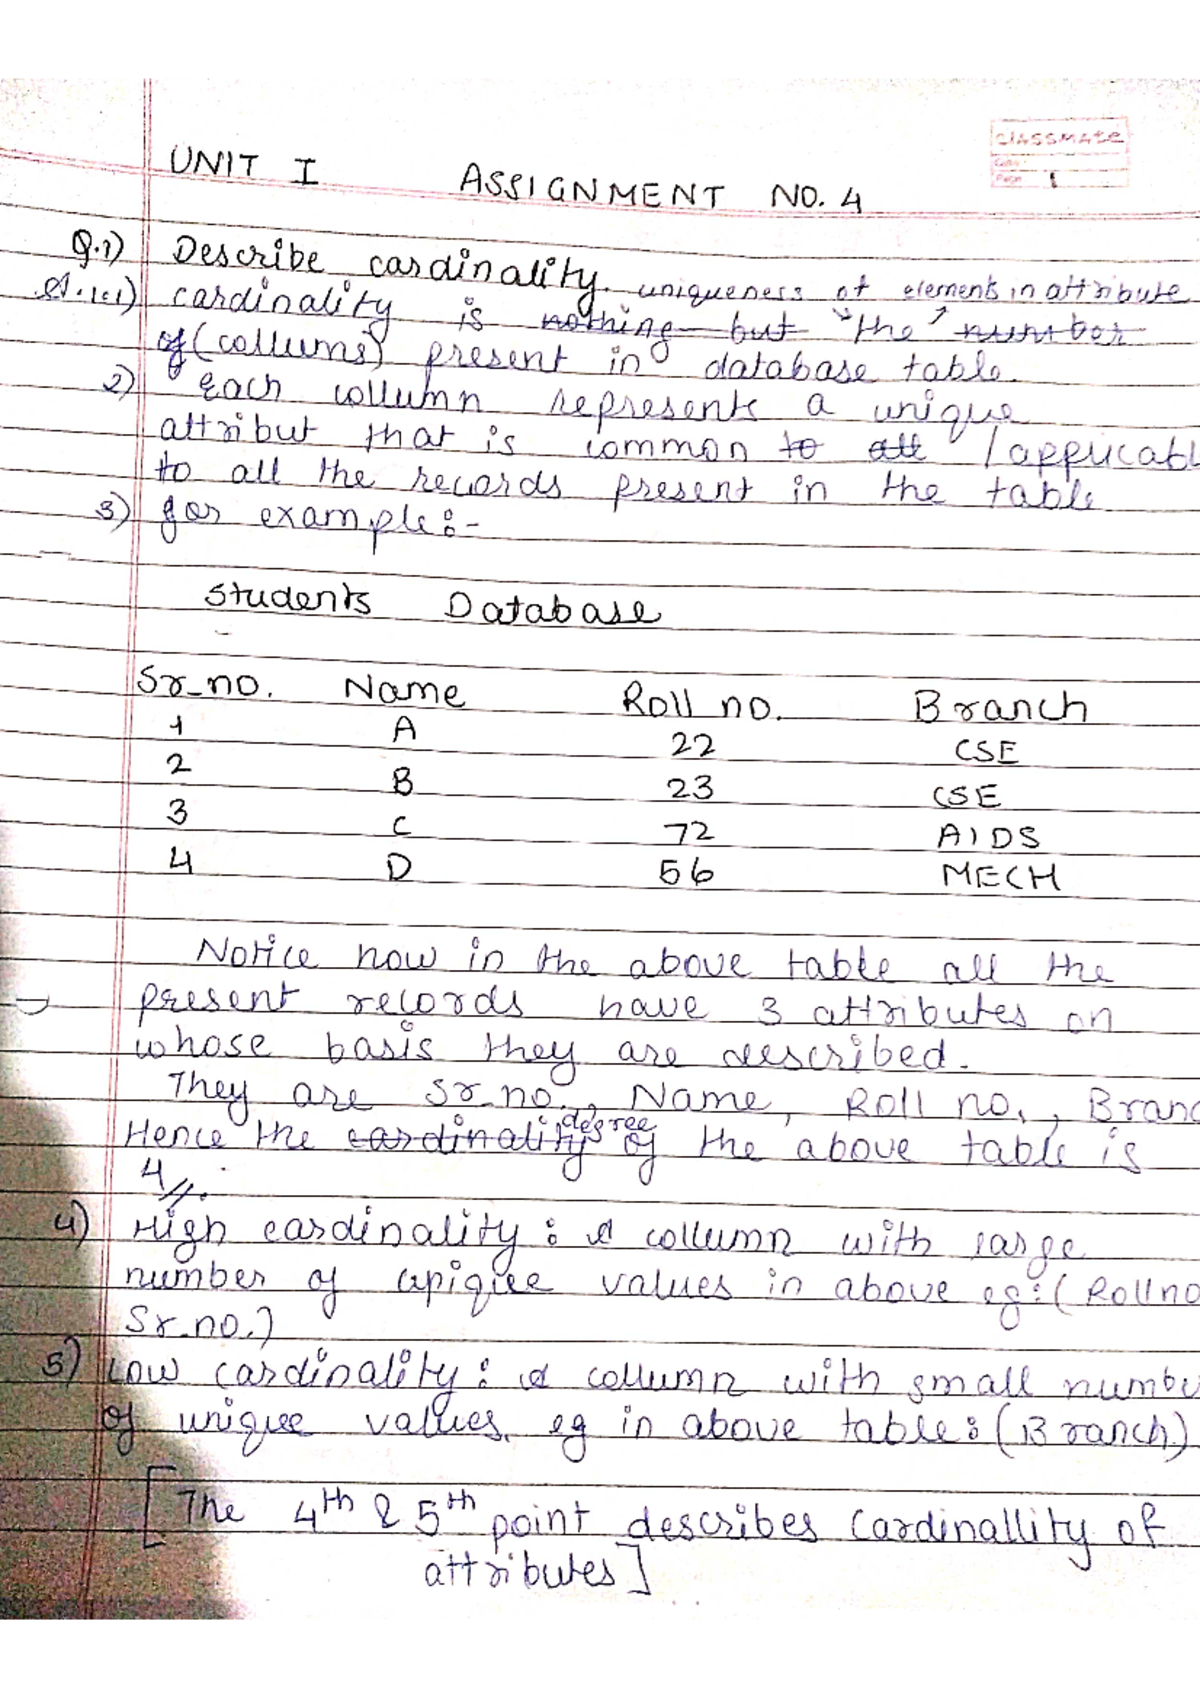 classmate
Date
Page 1
UNIT I ASSIGNMENT NO. 4
Q.1) Describe cardinality.
A.1.1) cardinality is nothing but the uniqueness of elements in attribute number
of (collumns) present in database table.
2) Each collumn represents a unique
attribut that is common to all / applicabl
to all the records present in the table
3) for example:-
Students Database
Sr_no. Name Roll no. Branch
1 A 22 CSE
2 B 23 CSE
3 C 72 AIDS
4 D 56 MECH
Notice now in the above table all the
present records have 3 attributes on
whose basis they are described.
They are Sr_no., Name, Roll no., Branc
Hence the cardinality degree of the above table is
4
4) High cardinality: A collumn with large
number of uniqiue values in above eg:(Roll no
Sr_no.)
5) Low cardinality: A collumn with small numbe
of uniquee values. eg in above table: (Branch)
[The 4th & 5th point describes Cardinallity of
attributes]